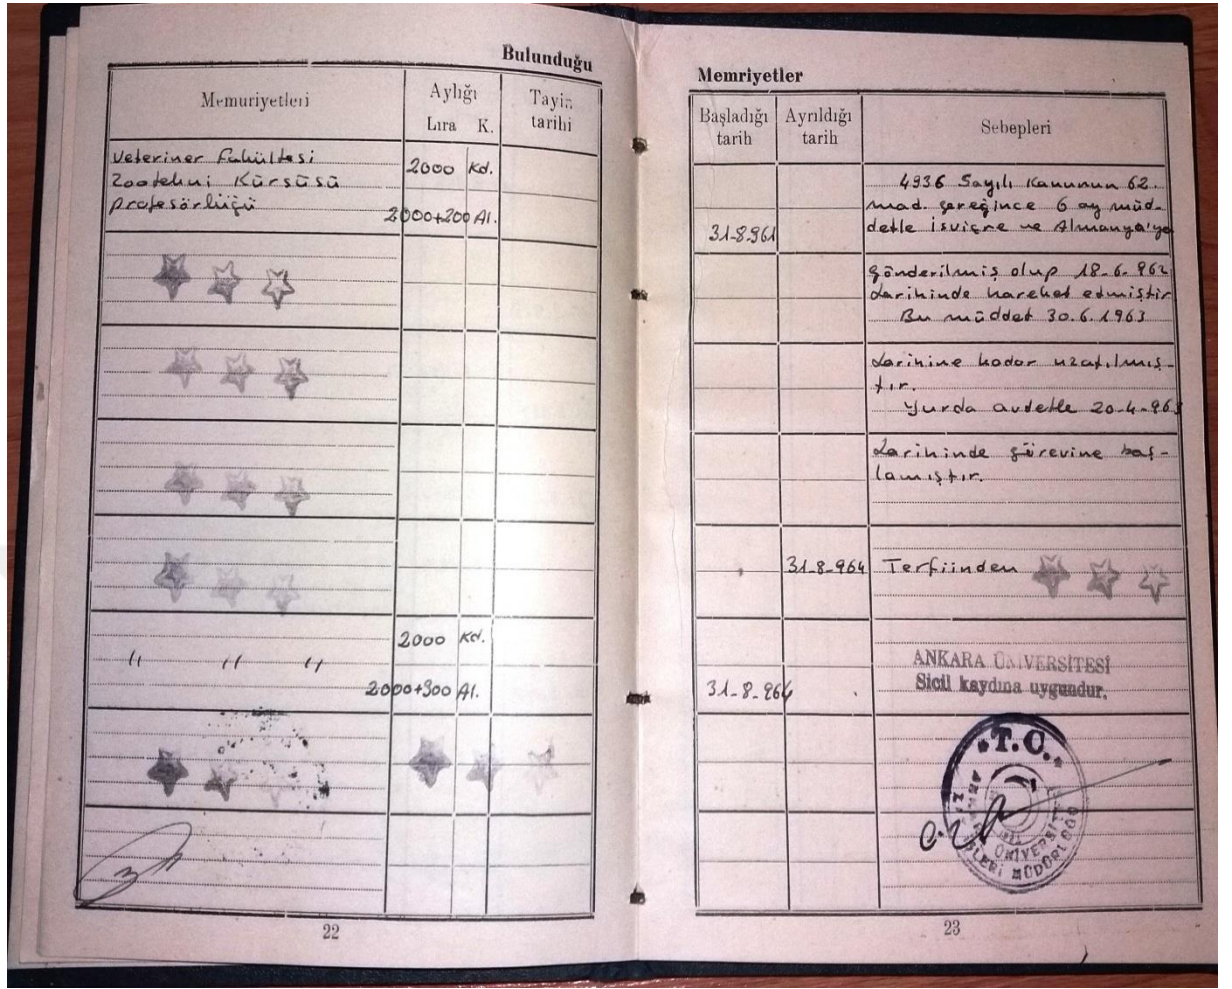 Bulunduğu
Memuriyetleri
Aylığı
Lira K.
Tayin
tarihi
Veteriner Fakültesi
Zootekni Kürsüsü
profesörlüğü
2000 Kd.
2000+200 Al.
" " "
2000 Kd.
2000+300 Al.
22
Memriyetler
Başladığı
tarih
Ayrıldığı
tarih
Sebepleri
31-8-961
4936 Sayılı Kanunun 62.
mad. gereğince 6 ay müd-
detle İsviçre ve Almanya'ya
gönderilmiş olup 18-6-962
tarihinde hareket etmiştir
Bu müddet 30.6.1963
tarihine kadar uzatılmış-
tır.
Yurda avdetle 20-4-963
tarihinde görevine baş-
lamıştır.
31-8-964 Terfiinden
31-8-964
ANKARA ÜNİVERSİTESİ
Sicil kaydına uygundur.
T.C.
ÜNİVERSİTESİ
İŞLERİ MÜDÜRLÜĞÜ
23